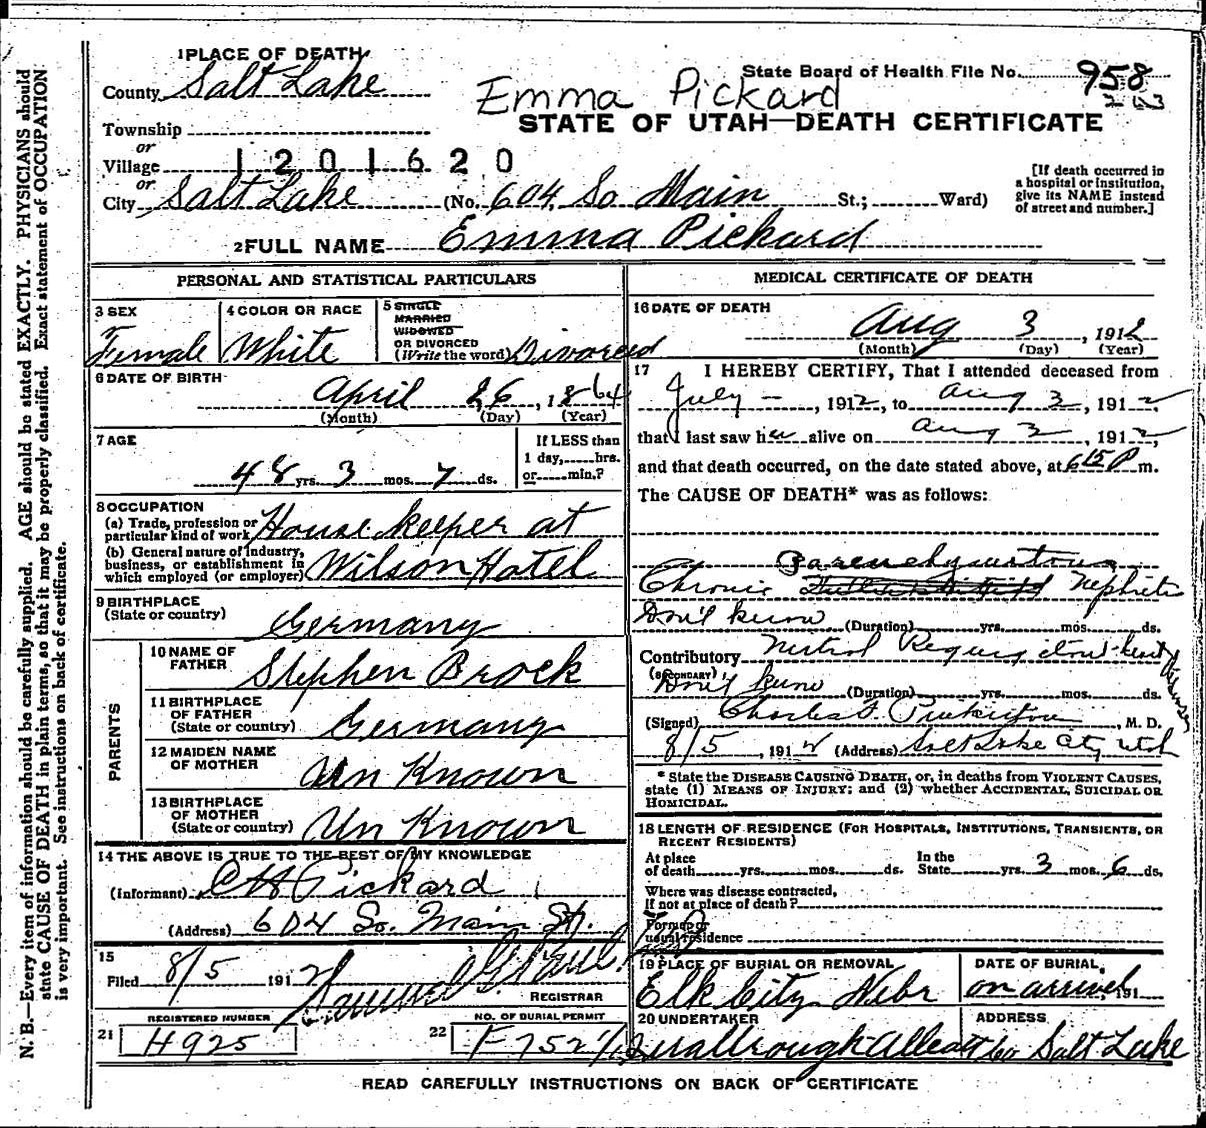 1 PLACE OF DEATH
County Salt Lake
State Board of Health File No. 958
Emma Pickard
Township
STATE OF UTAH—DEATH CERTIFICATE
or
Village 1201620
or
City Salt Lake (No. 604 So Main St.; Ward)
[If death occurred in a hospital or institution, give its NAME instead of street and number.]
2 FULL NAME Emma Pickard
PERSONAL AND STATISTICAL PARTICULARS
3 SEX
Female
4 COLOR OR RACE
White
5 SINGLE
MARRIED
WIDOWED
OR DIVORCED
(Write the word) Divorced
6 DATE OF BIRTH
April 26, 1864
(Month) (Day) (Year)
7 AGE
48 yrs. 3 mos. 7 ds.
If LESS than
1 day, hrs.
or min.?
8 OCCUPATION
(a) Trade, profession or
particular kind of work House keeper at
(b) General nature of industry,
business, or establishment in
which employed (or employer) Wilson Hotel
9 BIRTHPLACE
(State or country)
Germany
PARENTS
10 NAME OF
FATHER Stephen Brock
11 BIRTHPLACE
OF FATHER
(State or country) Germany
12 MAIDEN NAME
OF MOTHER Un Known
13 BIRTHPLACE
OF MOTHER
(State or country) Un Known
14 THE ABOVE IS TRUE TO THE BEST OF MY KNOWLEDGE
(Informant) C H Pickard
(Address) 604 So. Main St.
15
Filed 8/5 1912
REGISTRAR
REGISTERED NUMBER
21 H925
NO. OF BURIAL PERMIT
22 F752
MEDICAL CERTIFICATE OF DEATH
16 DATE OF DEATH
Aug 3, 1912
(Month) (Day) (Year)
17 I HEREBY CERTIFY, That I attended deceased from
July, 1912, to Aug 3, 1912,
that I last saw her alive on Aug 3, 1912,
and that death occurred, on the date stated above, at 6 15 P m.
The CAUSE OF DEATH* was as follows:
Parenchymatous
Chronic Nephritis
Don't know (Duration) yrs. mos. ds.
Contributory Mitral Regurgitation heart
(SECONDARY)
Don't know (Duration) yrs. mos. ds.
(Signed) Charles F. , M. D.
8/5, 1912 (Address) Salt Lake City Utah
* State the DISEASE CAUSING DEATH, or, in deaths from VIOLENT CAUSES,
state (1) MEANS OF INJURY; and (2) whether ACCIDENTAL, SUICIDAL OR
HOMICIDAL.
18 LENGTH OF RESIDENCE (FOR HOSPITALS, INSTITUTIONS, TRANSIENTS, OR
RECENT RESIDENTS)
At place
of death yrs. mos. ds.
In the
State yrs. 3 mos. 6 ds.
Where was disease contracted,
If not at place of death?
Former or
usual residence
19 PLACE OF BURIAL OR REMOVAL
Elk City Nebr
DATE OF BURIAL
on arrival, 191
20 UNDERTAKER
ADDRESS
Salt Lake
READ CAREFULLY INSTRUCTIONS ON BACK OF CERTIFICATE
N. B.—Every item of information should be carefully supplied. AGE should be stated EXACTLY. PHYSICIANS should
state CAUSE OF DEATH in plain terms, so that it may be properly classified. Exact statement of OCCUPATION
is very important. See instructions on back of certificate.